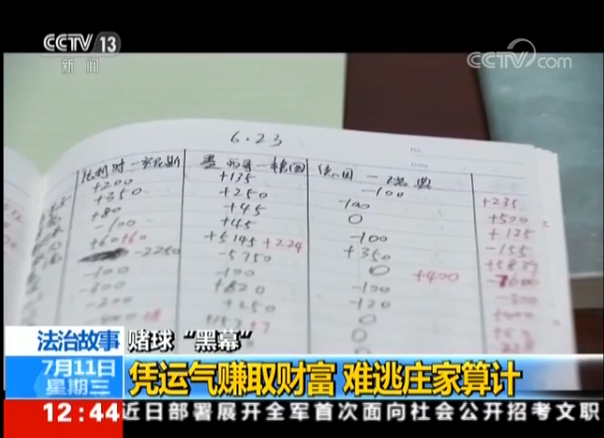 CCTV 13
新闻
CCTV.com
6.23
比利时一突尼斯 墨西哥一韩国 德国一瑞典
+200 +135 -100 +235
+350 +250 -100 +500
+80 +45 0 +125
-100 +45 -100 -155
+60+60 +5145 +224 +350
-2250 -5750 0 +400 -7600
-100 -100 -100 -300
+820 -120
+250 0
法治故事 赌球“黑幕”
7月11日
星期三
凭运气赚取财富 难逃庄家算计
12:44 近日部署展开全军首次面向社会公开招考文职